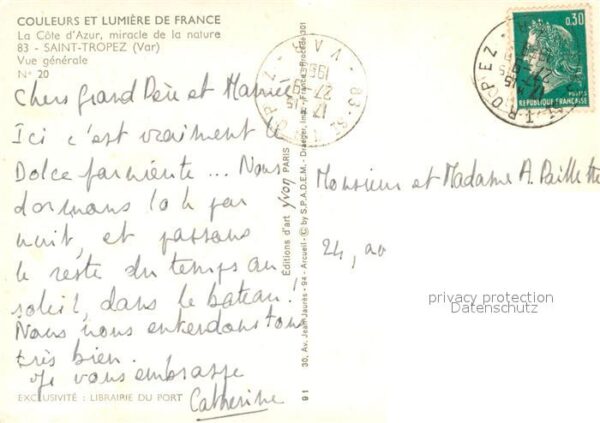 COULEURS ET LUMIÈRE DE FRANCE
La Côte d'Azur, miracle de la nature
83 - SAINT-TROPEZ (Var)
Vue générale
N° 20
Chers Grand Père et Mamie
Ici c'est vraiment le
Dolce farniente ... Nous
dormons 10 h par
nuit, et passons
le reste du temps au
soleil, dans le bateau !
Nous nous entendons tous
très bien.
Je vous embrasse
Catherine
EXCLUSIVITÉ : LIBRAIRIE DU PORT
Éditions d'art yvon PARIS
30, Av. Jean Jaurès - 94 - Arcueil - © by S.P.A.D.E.M. - Draeger, Imp. - France - Procédé 301
91
83 - ST TROPEZ VAR
17
27-9
0.30
POSTES
REPUBLIQUE FRANÇAISE
Monsieur et Madame A. Paillette
24, av
privacy protection
Datenschutz